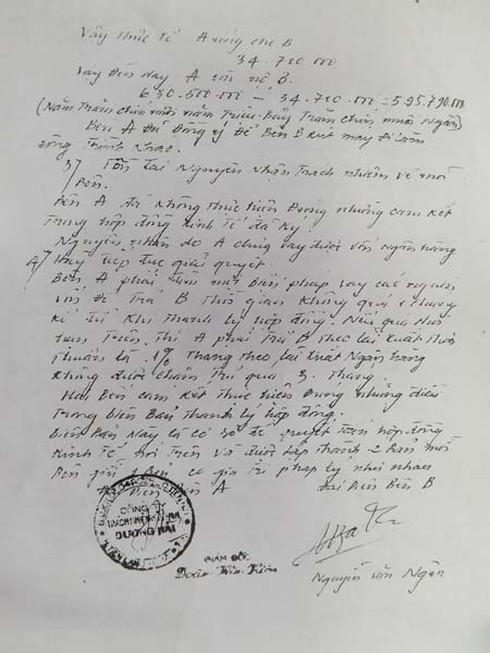 Vậy thực tế A ứng cho B
34.710.000
Vậy đến nay A còn nợ B.
630.500.000 - 34.710.000 = 595.790.000
(Năm trăm chín mươi năm triệu bảy trăm chín mươi ngàn)
Bên A đã đồng ý để bên B rút máy đi làm
công trình khác.
3/ Tồn tại nguyên nhân trách nhiệm về mỗi
bên.
Bên A đã không thực hiện đúng những cam kết
trong hợp đồng kinh tế đã ký.
Nguyên nhân do A chưa vay được vốn ngân hàng
4/ Hãy tiếp tục giải quyết
Bên A phải tìm mọi biện pháp vay các nguồn
vốn để trả B thời gian không quá 1 tháng
kể từ khi thanh lý hợp đồng. Nếu quá thời
trên thì A phải trả B theo lãi xuất thỏa
thuận là 1% tháng theo lãi xuất ngân hàng
không được chậm trễ quá 3 tháng.
Hai bên cam kết thực hiện đúng những điều
trong biên bản thanh lý hợp đồng.
Biên bản này là cơ sở để quyết toán hợp đồng
kinh tế nói trên và được lập thành 2 bản mỗi
bên giữ 1 bản có giá trị pháp lý như nhau
Đại diện bên A Đại diện bên B
CÔNG TY
DƯƠNG HẢI
GIÁM ĐỐC
Nguyễn Văn Ngân